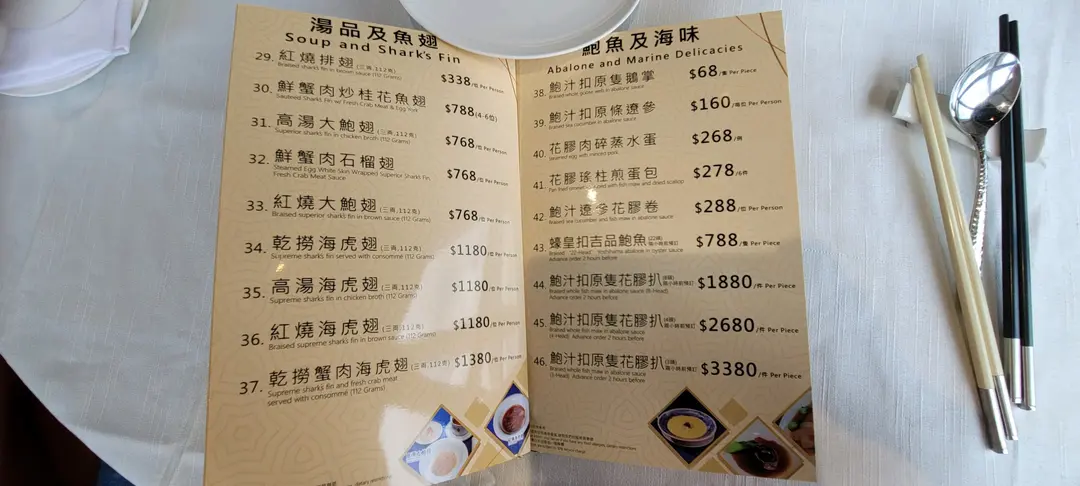 湯品及魚翅
Soup and Shark's Fin
29. 紅燒排翅 (三両,112克) $338/位 Per Person
Braised sharks fin in brown sauce (112 Grams)
30. 鮮蟹肉炒桂花魚翅 $788 (4-6位)
Sauteed Sharks Fin w/ Fresh Crab Meat & Egg York
31. 高湯大鮑翅 (三両,112克) $768/位 Per Person
Superior sharks fin in chicken broth (112 Grams)
32. 鮮蟹肉石榴翅 $768/位 Per Person
Steamed Egg White Skin Wrapped Superior Sharks Fin,
Fresh Crab Meat Sauce
33. 紅燒大鮑翅 (三両,112克) $768/位 Per Person
Braised superior sharks fin in brown sauce (112 Grams)
34. 乾撈海虎翅 (三両,112克) $1180/位 Per Person
Supreme sharks fin served with consommé (112 Grams)
35. 高湯海虎翅 (三両,112克) $1180/位 Per Person
Supreme sharks fin in chicken broth (112 Grams)
36. 紅燒海虎翅 (三両,112克) $1180/位 Per Person
Braised supreme sharks fin in brown sauce (112 Grams)
37. 乾撈蟹肉海虎翅 (三両,112克) $1380/位 Per Person
Supreme sharks fin and fresh crab meat
served with consommé (112 Grams)
鮑魚及海味
Abalone and Marine Delicacies
38. 鮑汁扣原隻鵝掌 $68/隻 Per Piece
Braised whole goose web in abalone sauce
39. 鮑汁扣原條遼參 $160/每位 Per Person
Braised sea cucumber in abalone sauce
40. 花膠肉碎蒸水蛋 $268/例
Steamed egg with minced pork
41. 花膠瑤柱煎蛋包 $278/6件
Pan fried omelet with fish maw and dried scallop
42. 鮑汁遼參花膠卷 $288/位 Per Person
Braised sea cucumber and fish maw in abalone sauce
43. 蠔皇扣吉品鮑魚 (22頭) $788/隻 Per Piece
Braised "22-Head" Yoshihama abalone in oyster sauce
Advance order 2 hours before
44. 鮑汁扣原隻花膠扒 (8頭) $1880/件 Per Piece
Braised whole fish maw in abalone sauce (8-Head)
Advance order 2 hours before
45. 鮑汁扣原隻花膠扒 (4頭) $2680/件 Per Piece
Braised whole fish maw in abalone sauce
(4-Head) Advance order 2 hours before
46. 鮑汁扣原隻花膠扒 (3頭) $3380/件 Per Piece
Braised whole fish maw in abalone sauce
(3-Head) Advance order 2 hours before